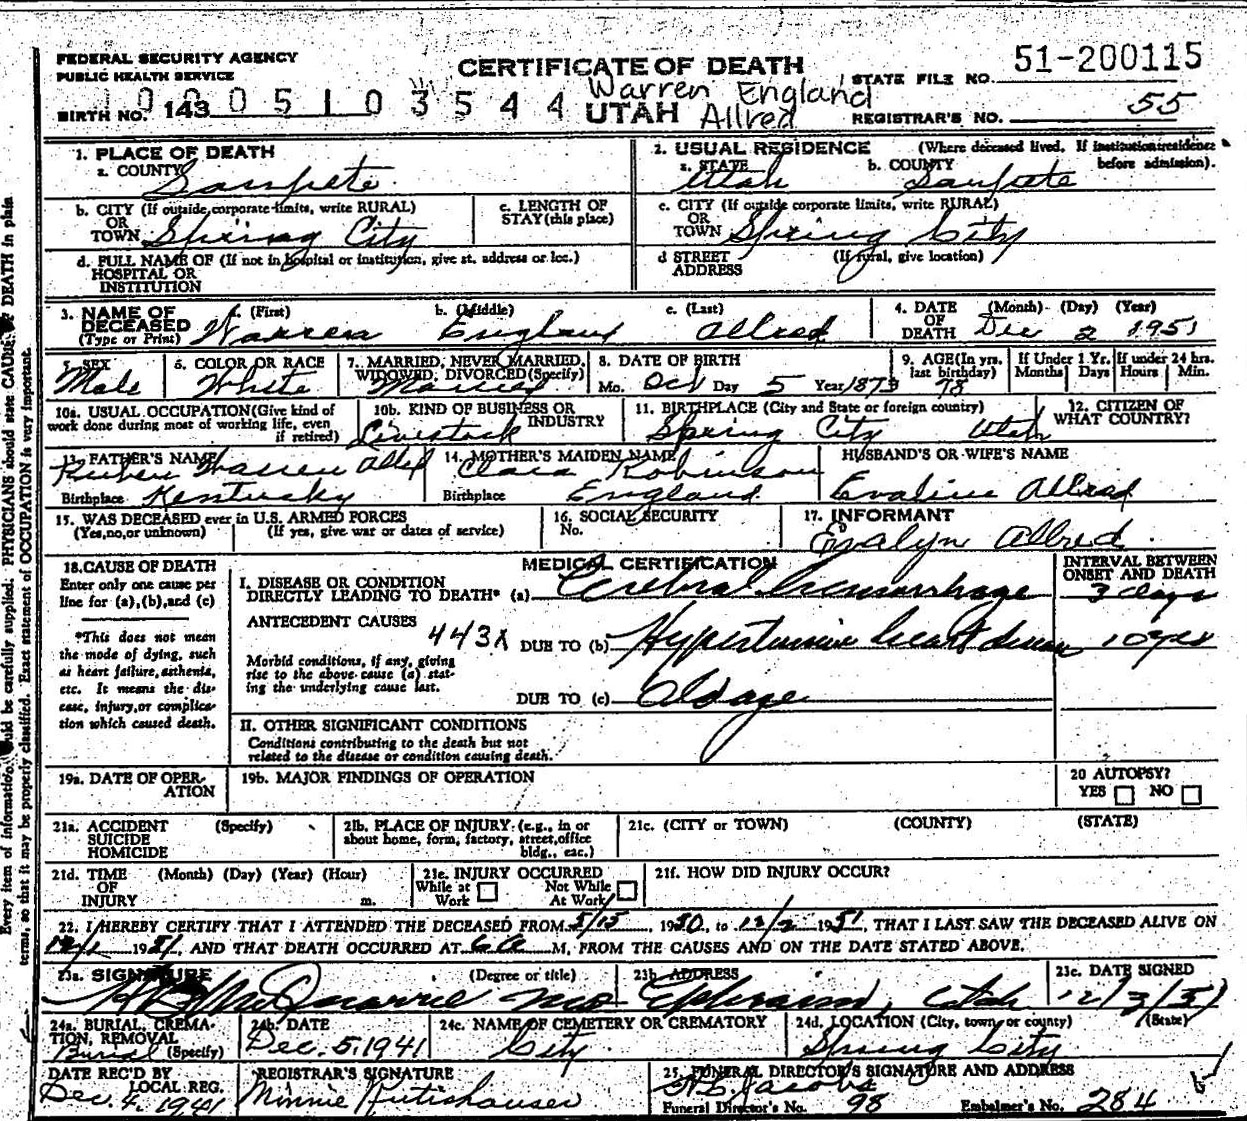 FEDERAL SECURITY AGENCY
PUBLIC HEALTH SERVICE
CERTIFICATE OF DEATH
STATE FILE NO. 51-200115
BIRTH NO. 143 1 0 0 0 5 1 0 3 5 4 4
UTAH
Warren England
Allred
REGISTRAR'S NO. 55
1. PLACE OF DEATH
a. COUNTY Sanpete
2. USUAL RESIDENCE (Where deceased lived. If institution: residence before admission).
a. STATE Utah b. COUNTY Sanpete
b. CITY (If outside corporate limits, write RURAL) OR TOWN Spring City
c. LENGTH OF STAY (this place)
c. CITY (If outside corporate limits, write RURAL) OR TOWN Spring City
d. FULL NAME OF (If not in hospital or institution, give st. address or loc.) HOSPITAL OR INSTITUTION
d STREET ADDRESS (If rural, give location)
3. NAME OF DECEASED (Type or Print) a. (First) Warren b. (Middle) England c. (Last) Allred
4. DATE OF DEATH (Month) (Day) (Year) Dec 2 1951
5. SEX Male
6. COLOR OR RACE White
7. MARRIED, NEVER MARRIED, WIDOWED, DIVORCED (Specify) Married
8. DATE OF BIRTH Mo. Oct Day 5 Year 1873
9. AGE (In yrs. last birthday) 78
If Under 1 Yr. Months Days
If under 24 hrs. Hours Min.
10a. USUAL OCCUPATION (Give kind of work done during most of working life, even if retired)
10b. KIND OF BUSINESS OR INDUSTRY Livestock
11. BIRTHPLACE (City and State or foreign country) Spring City Utah
12. CITIZEN OF WHAT COUNTRY?
13. FATHER'S NAME Ruben Warren Allred
Birthplace Kentusky
14. MOTHER'S MAIDEN NAME Clara Robinson
Birthplace England
HUSBAND'S OR WIFE'S NAME
Evaline Allred
15. WAS DECEASED ever in U.S. ARMED FORCES
(Yes, no, or unknown) (If yes, give war or dates of service)
16. SOCIAL SECURITY No.
17. INFORMANT
Allred
18. CAUSE OF DEATH
Enter only one cause per line for (a), (b), and (c)
*This does not mean the mode of dying, such as heart failure, asthenia, etc. It means the disease, injury, or complication which caused death.
MEDICAL CERTIFICATION
I. DISEASE OR CONDITION DIRECTLY LEADING TO DEATH* (a) Cerebral hemorrhage
INTERVAL BETWEEN ONSET AND DEATH
3 days
ANTECEDENT CAUSES
443X DUE TO (b) Hypertensive heart disease 10 yrs
Morbid conditions, if any, giving rise to the above cause (a) stating the underlying cause last.
DUE TO (c) Old age
II. OTHER SIGNIFICANT CONDITIONS
Conditions contributing to the death but not related to the disease or condition causing death.
19a. DATE OF OPERATION
19b. MAJOR FINDINGS OF OPERATION
20 AUTOPSY?
YES NO
21a. ACCIDENT SUICIDE HOMICIDE (Specify)
21b. PLACE OF INJURY (e.g., in or about home, form, factory, street, office bldg., etc.)
21c. (CITY or TOWN) (COUNTY) (STATE)
21d. TIME OF INJURY (Month) (Day) (Year) (Hour) m.
21e. INJURY OCCURRED
While at Work Not While At Work
21f. HOW DID INJURY OCCUR?
22. I HEREBY CERTIFY THAT I ATTENDED THE DECEASED FROM 5/15 1950, to 12/2 1951, THAT I LAST SAW THE DECEASED ALIVE ON
12/1 1951, AND THAT DEATH OCCURRED AT 6 a M, FROM THE CAUSES AND ON THE DATE STATED ABOVE.
23a. SIGNATURE (Degree or title) McQuarrie MD
23b. ADDRESS Ephraim, Utah
23c. DATE SIGNED 12/3/51
24a. BURIAL, CREMATION, REMOVAL (Specify) Burial
24b. DATE Dec. 5, 1941
24c. NAME OF CEMETERY OR CREMATORY City
24d. LOCATION (City, town, or county) (State) Spring City
DATE REC'D BY LOCAL REG. Dec. 4, 1941
REGISTRAR'S SIGNATURE Minnie
25. FUNERAL DIRECTOR'S SIGNATURE AND ADDRESS
Jacobs
Funeral Director's No. 98 Embalmer's No. 284
Every item of information should be carefully supplied. PHYSICIANS should state CAUSE OF DEATH in plain
terms, so that it may be properly classified. Exact statement of OCCUPATION is very important.